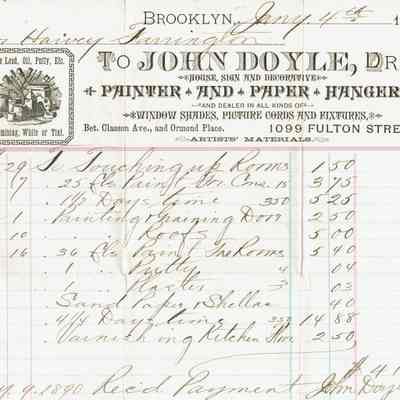 BROOKLYN, Jany 4th 1
Harvey Farrington
TO JOHN DOYLE, DR
HOUSE, SIGN AND DECORATIVE
PAINTER AND PAPER HANGER
AND DEALER IN ALL KINDS OF
WINDOW SHADES, PICTURE CORDS AND FIXTURES,
Bet. Classon Ave., and Ormond Place. 1099 FULTON STRE
ARTISTS' MATERIALS.
Lead, Oil, Putty, Etc.
White or Tint.
29 To Touching up Rooms 1 50
17 " 25 lbs Paint 15 3 75
" 1½ Days time 350 5 25
1 Painting & Graining Door 2 50
10 " " Roofs 5 00
16 " 36 lbs Paint Rooms 15 5 40
" 1 " Putty 4 04
" 1 " Plaster 3 03
Sand Paper & Shellac 40
" 4¼ Days time 350 14 88
" Varnishing Kitchen Floor 2 50
9 1890 Rec'd Payment John Doyle